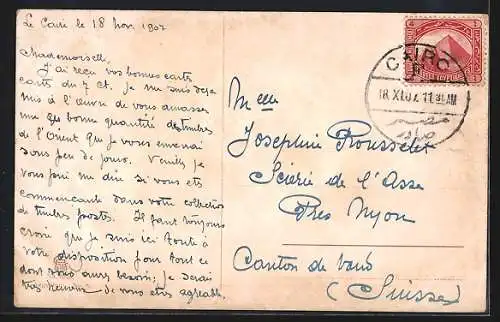 Le Caire le 18 Nov. 1907
Mademoiselle,
J'ai reçu vos bonnes carte
carte du 7 ct. Je me suis déja
mis à l'œuvre de vous amasser
une bonne quantité de timbres
de l'Orient que je vous enverrai
sous peu de jours. Veuillez je
vous prie me dire si vous êts
commencante dans votre collection
de timbres posts. Il faut toujours
croire que je suis ici toute à
votre disposition pour tout ce
dont vous aurez besoin; je serais
très heureux de vous être agreable.
CAIRO
18.XI.07.11 AM
مصر
صادر
Melle
Josephine Rousselet
Scierie de l'Asse
Près Nyon
Canton de Vaud
(Suisse)